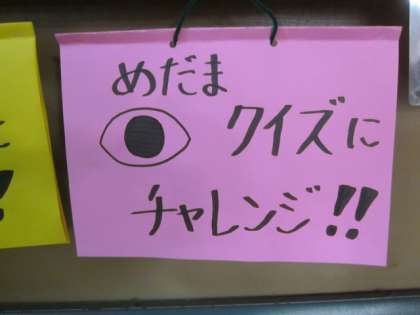 めだま
クイズに
チャレンジ!!
に
!